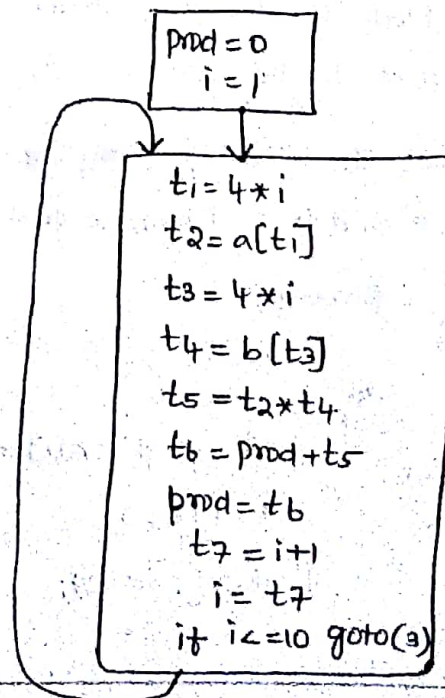 prod = 0
i = 1
t1 = 4 * i
t2 = a[t1]
t3 = 4 * i
t4 = b[t3]
t5 = t2 * t4
t6 = prod + t5
prod = t6
t7 = i+1
i = t7
if i <= 10 goto(3)